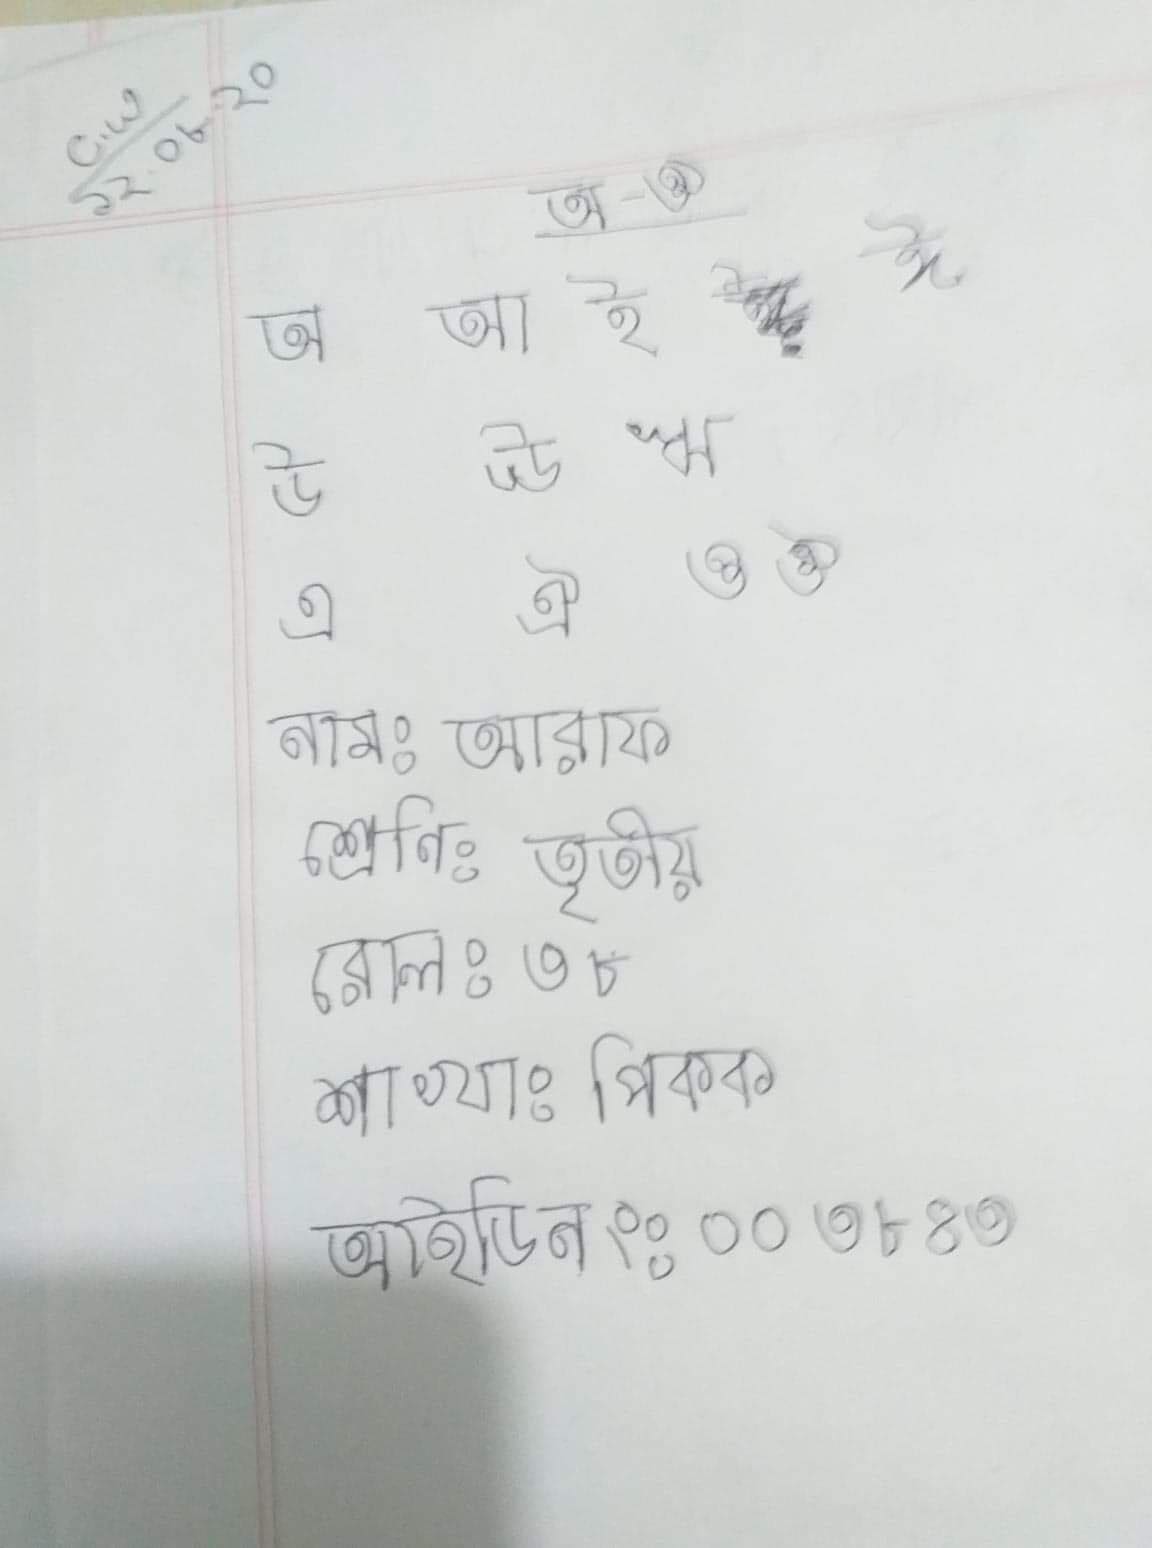 C.W
১২.০৮.২০
অ-ঔ
অ আ ই ঈ
উ ঊ ঋ
এ ঐ ও ঔ
নামঃ আরাফ
শ্রেনিঃ তৃতীয়
রোলঃ ৩৮
শাখাঃ পিকক
আইডিনংঃ ০০৩৮৪৩